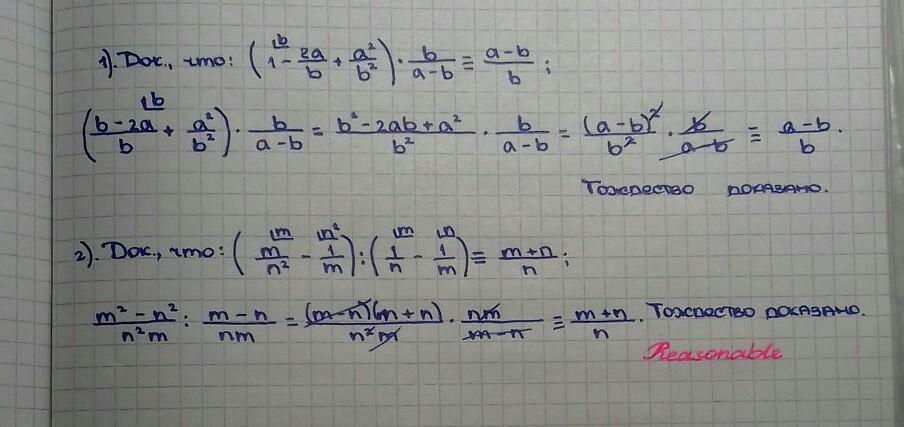 1). Док., что: (1 - 2a/b + a²/b²) · b/(a-b) ≡ (a-b)/b;
((b-2a)/b + a²/b²) · b/(a-b) = (b²-2ab+a²)/b² · b/(a-b) = (a-b)²/b² · b/(a-b) ≡ (a-b)/b.
Тождество доказано.
2). Док., что: (m/n² - 1/m) : (1/n - 1/m) ≡ (m+n)/n;
(m²-n²)/(n²m) : (m-n)/(nm) = (m-n)(m+n)/(n²m) · nm/(m-n) ≡ (m+n)/n. Тождество доказано.
Reasonable